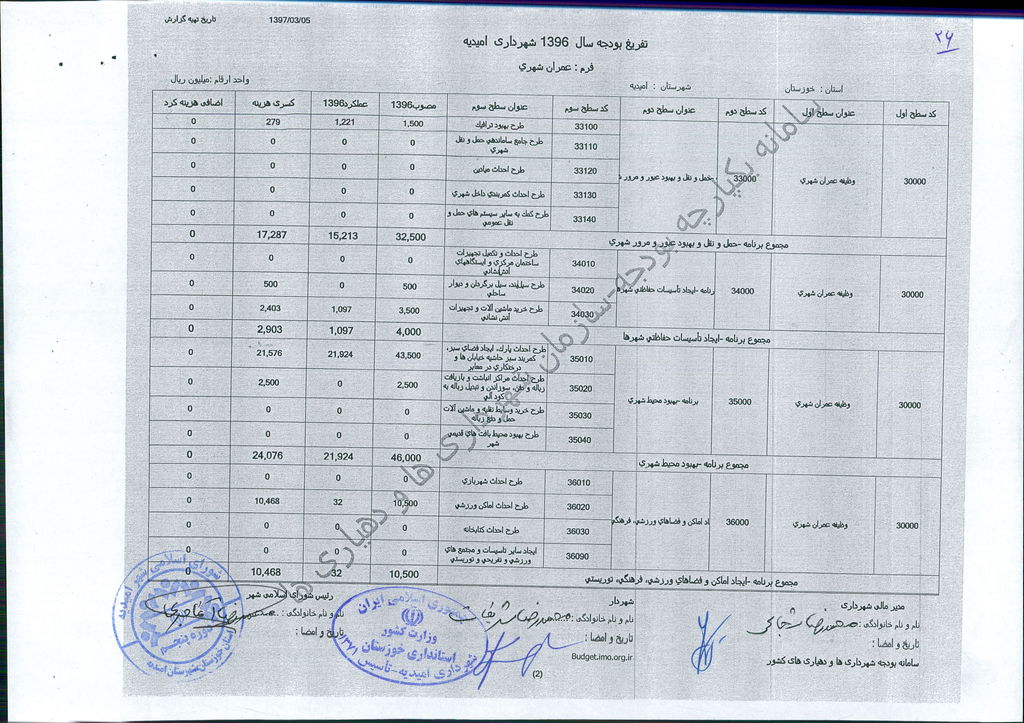 تاریخ تهیه گزارش 1397/03/05
۲۶
تفریغ بودجه سال 1396 شهرداری امیدیه
فرم : عمران شهري
استان : خوزستان شهرستان : امیدیه واحد ارقام :میلیون ریال
کد سطح اول عنوان سطح اول کد سطح دوم عنوان سطح دوم کد سطح سوم عنوان سطح سوم مصوب1396 عملکرد1396 کسری هزینه اضافی هزینه کرد
30000 وظیفه عمران شهري 33000 -حمل و نقل و بهبود عبور و مرور
33100 طرح بهبود ترافیك 1,500 1,221 279 0
33110 طرح جامع ساماندهی حمل و نقل شهري 0 0 0 0
33120 طرح احداث میادین 0 0 0 0
33130 طرح احداث کمربندی داخل شهري 0 0 0 0
33140 طرح کمك به سایر سیستم هاي حمل و نقل عمومي 0 0 0 0
مجموع برنامه -حمل و نقل و بهبود عبور و مرور شهري 32,500 15,213 17,287 0
30000 وظیفه عمران شهري 34000 برنامه -ایجاد تأسیسات حفاظتي شهرها
34010 طرح احداث و تکمیل تجهیزات ساختمان مرکزي و ایستگاههاي آتش‌نشاني 0 0 0 0
34020 طرح سیل‌بند، سیل برگردان و دیوار ساحلي 500 0 500 0
34030 طرح خرید ماشین آلات و تجهیزات آتش نشاني 3,500 1,097 2,403 0
مجموع برنامه -ایجاد تأسیسات حفاظتي شهرها 4,000 1,097 2,903 0
30000 وظیفه عمران شهري 35000 برنامه -بهبود محیط شهري
35010 طرح احداث پارك، ایجاد فضاي سبز، کمربند سبز حاشیه خیابان ها و درختکاري در معابر 43,500 21,924 21,576 0
35020 طرح احداث مراکز انباشت و بازیافت زباله و دفن، سوزاندن و تبدیل زباله به کود آلي 2,500 0 2,500 0
35030 طرح خرید وسایط نقلیه و ماشین آلات حمل و دفع زباله 0 0 0 0
35040 طرح بهبود محیط بافت هاي قدیمي شهر 0 0 0 0
مجموع برنامه -بهبود محیط شهري 46,000 21,924 24,076 0
30000 وظیفه عمران شهري 36000 اد اماکن و فضاهاي ورزشي، فرهنگي
36010 طرح احداث شهربازي 0 0 0 0
36020 طرح احداث اماکن ورزشي 10,500 32 10,468 0
36030 طرح احداث کتابخانه 0 0 0 0
36090 ایجاد سایر تاسیسات و مجتمع هاي ورزشي و تفریحي و توریستي 0 0 0 0
مجموع برنامه -ایجاد اماکن و فضاهاي ورزشي، فرهنگي، توریستي 10,500 32 10,468 0
سامانه یکپارچه بودجه-سازمان شهرداری ها و دهیاری ها
مدیر مالی شهرداری شهردار رئیس شورای اسلامی شهر
نام و نام خانوادگی : محمدرضا شجاعی نام و نام خانوادگی : محمدرضا نام و نام خانوادگی :
تاریخ و امضا : تاریخ و امضا : تاریخ و امضا :
سامانه بودجه شهرداری ها و دهیاری های کشور Budget.imo.org.ir
(2)
جمهوری اسلامی ایران
وزارت کشور
استانداری خوزستان
شهرداری امیدیه-تأسیس ۱۳۷۱
شورای اسلامی شهر امیدیه
دوره پنجم
استان خوزستان شهرستان امیدیه